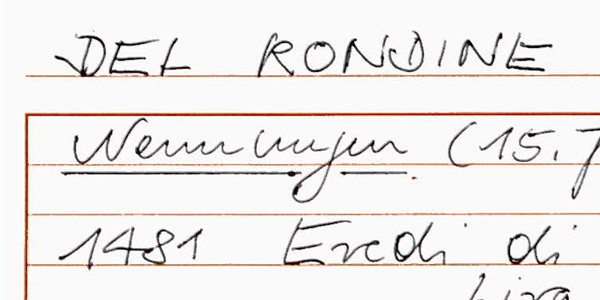 DEL RONDINE
Nennungen (15.
1481 Eredi di